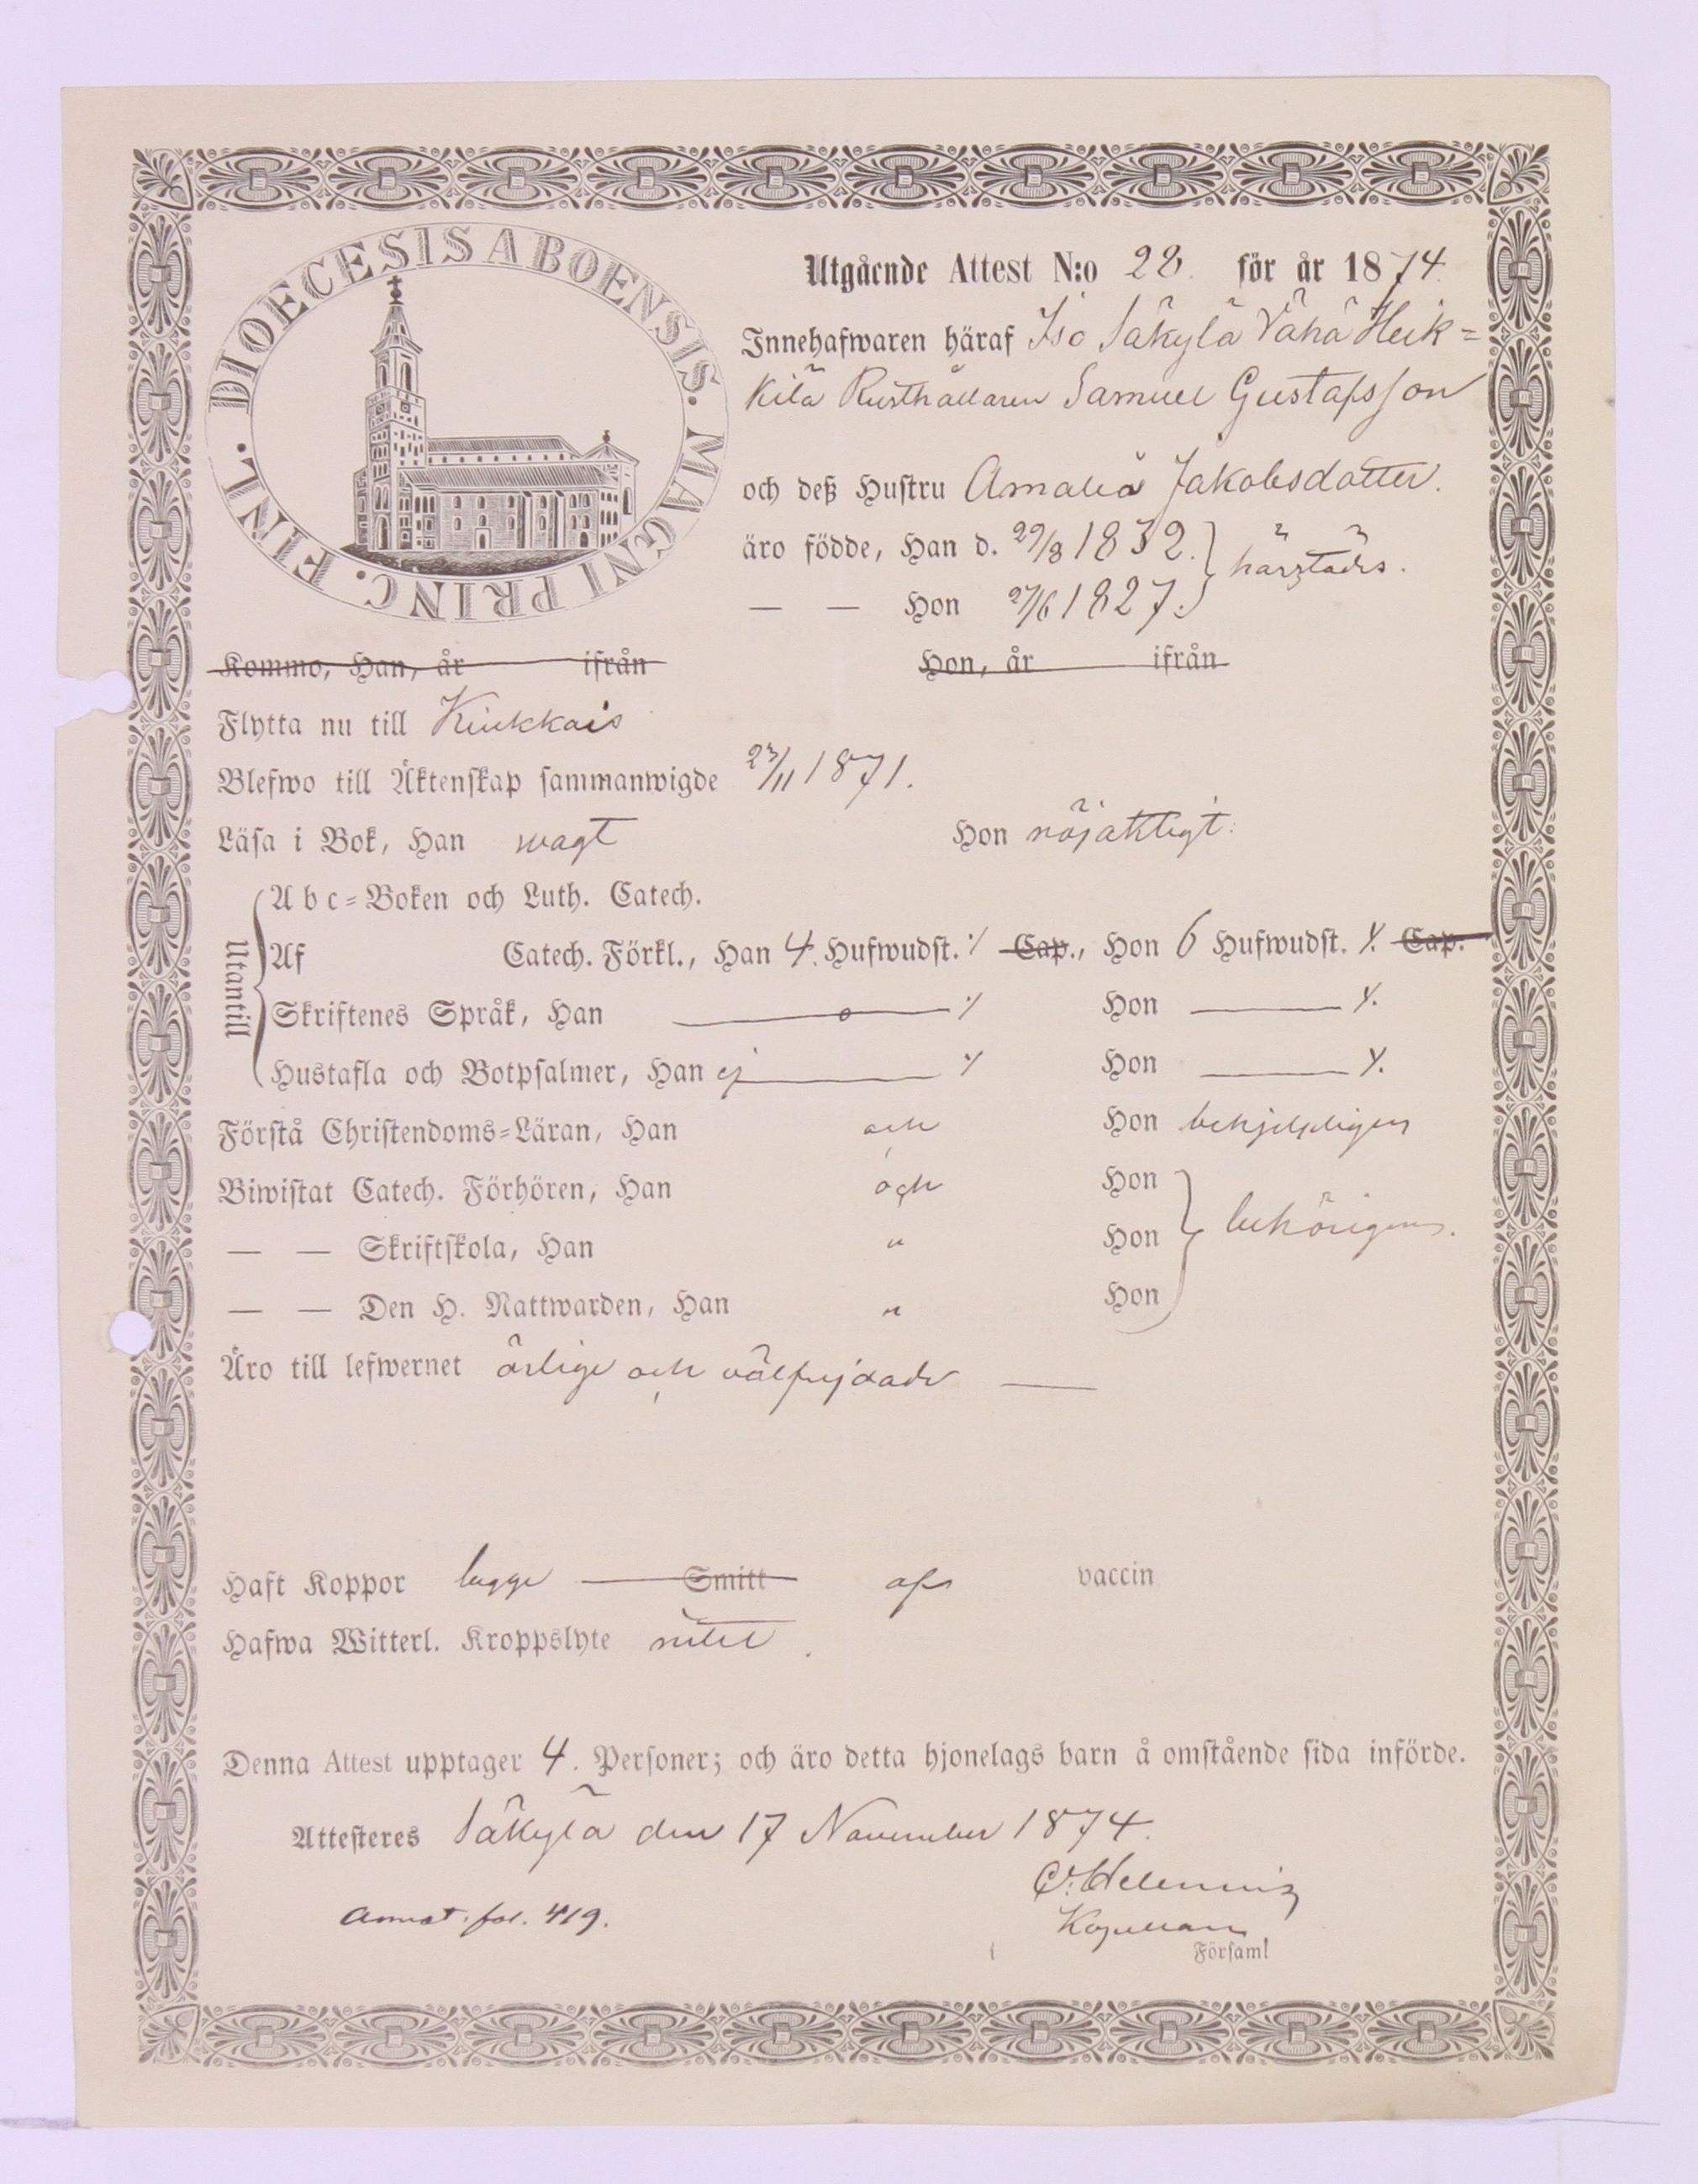 DIOECESIS ABOENSIS. MAGNI PRINC. FINL.
Utgående Attest N:o 28. för år 1874.
Innehafwaren häraf Iso Säkylä Vähä Heik=
kilä Rusthållaren Samuel Gustafsson
och deß Hustru Amalia Jakobsdotter.
äro födde, Han d. 29/8 1832. } härstädes.
— — Hon 27/6 1827.
Kommo, Han, år ifrån Hon, år ifrån
Flytta nu till Kiukkais
Blefwo till Äktenskap sammanwigde 23/11 1871.
Läsa i Bok, Han svagt Hon nöjaktigt.
Utantill
Abc=Boken och Luth. Catech.
Af Catech. Förkl., Han 4. Hufwudst. ./. Cap., Hon 6 Hufwudst. ./. Cap.
Skriftenes Språk, Han — ./. Hon — ./.
Hustafla och Botpsalmer, Han ej — ./. Hon — ./.
Förstå Christendoms=Läran, Han och Hon behjelpligen
Biwistat Catech. Förhören, Han och Hon } behörigen.
— — Skriftskola, Han " Hon
— — Den H. Nattwarden, Han " Hon
Äro till lefwernet ärlige och välfrejdade —
Haft Koppor begge — Smitt af vaccin
Hafwa Witterl. Kroppslyte intet.
Denna Attest upptager 4. Personer; och äro detta hjonelags barn å omstående sida införde.
Attesteres Säkylä den 17 November 1874.
Annot. fol. 419.
Kapellan
Församl